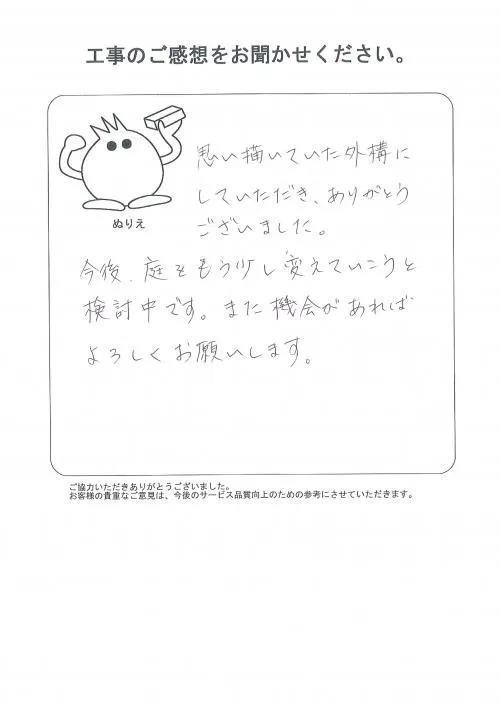 工事のご感想をお聞かせください。
思い描いていた外構に
していただき、ありがとう
ございました。
ぬりえ
今後、庭をもう少し変えていこうと
検討中です。また機会があれば
よろしくお願いします。
ご協力いただきありがとうございました。
お客様の貴重なご意見は、今後のサービス品質向上のための参考にさせていただきます。